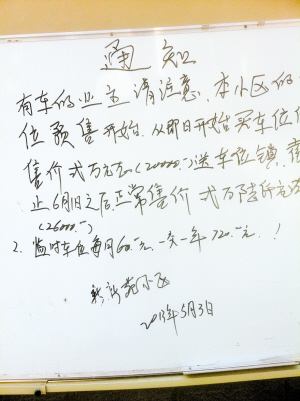 通知
有车的业主请注意、本小区的
位预售开始、从即日开始买车位
售价弍万元(20000.-)送车位锁,
止6月1日之后正常售价弍万陆仟元
(26000.-)
2、临时车位每月60.-元、一交一年720.-元、!
小区
2013年5月3日